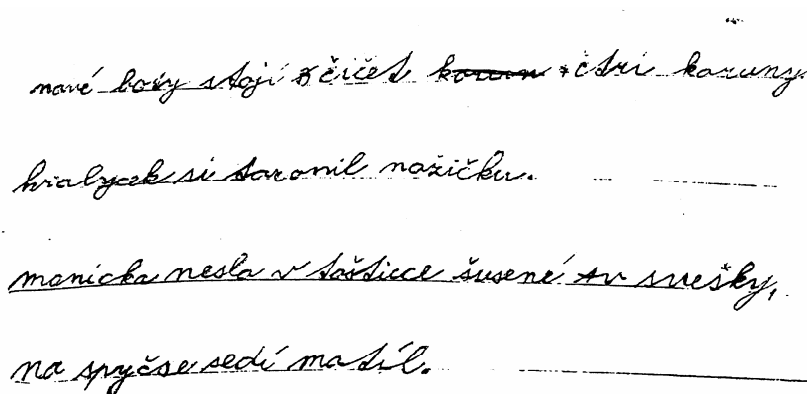 nové boty stojí čičet čtri koruny
hralycek si taronil nožičku.
manicka nesla v tašticce šusené sv svešky,
na spyčse sedí matíl.